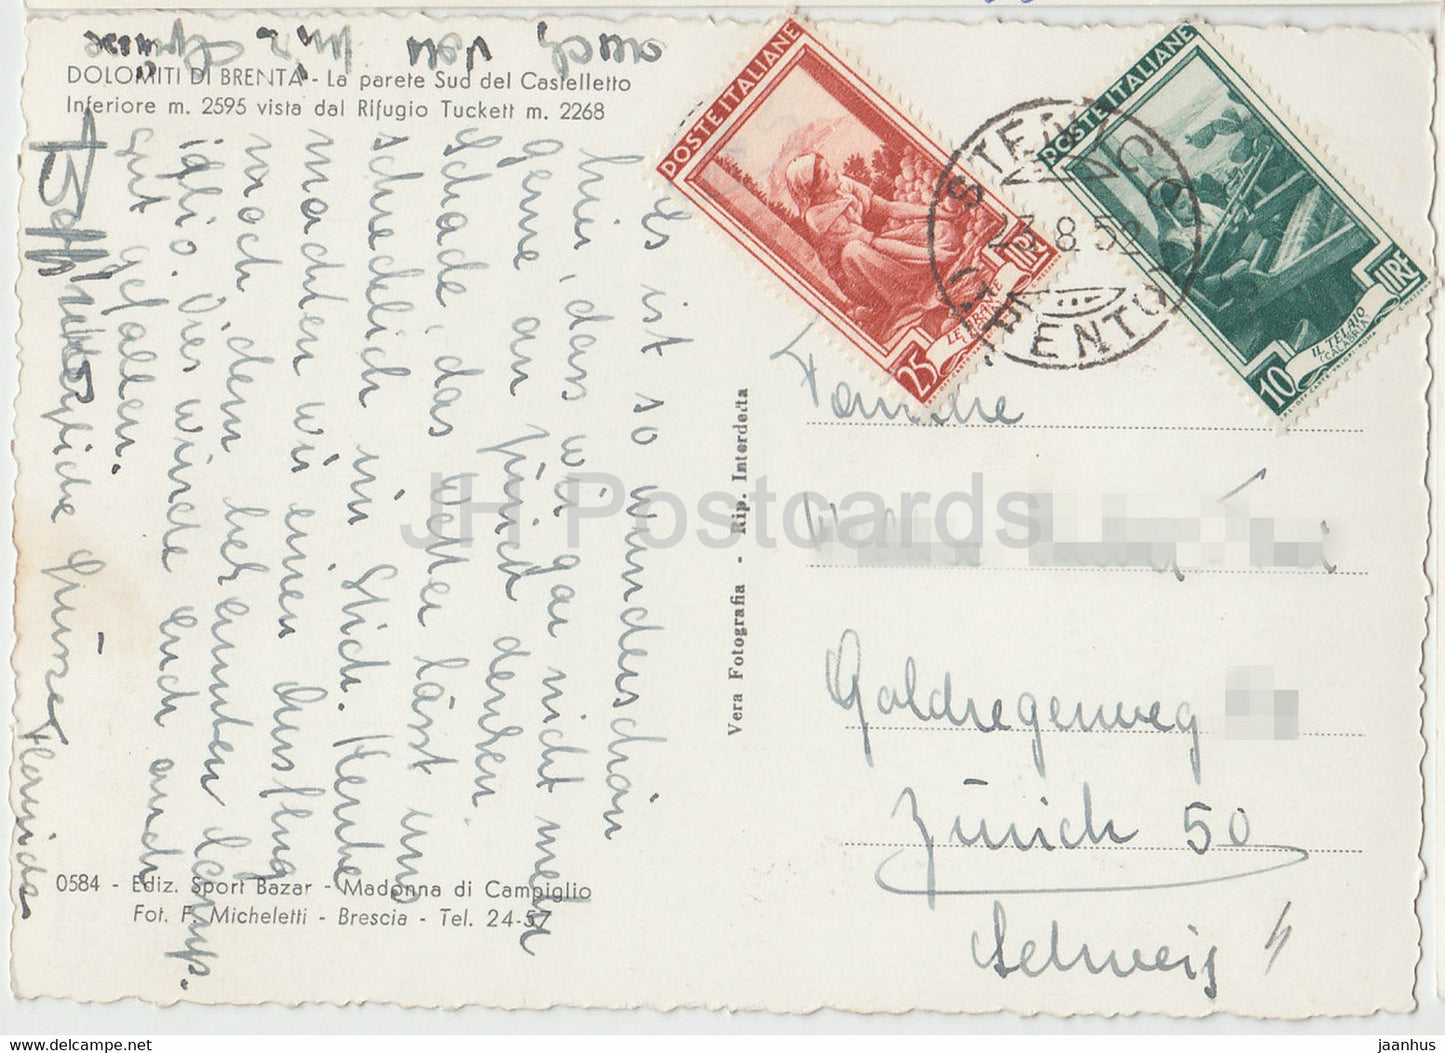 DOLOMITI DI BRENTA - La parete Sud del Castelletto
Inferiore m. 2595 vista dal Rifugio Tuckett m. 2268
Es ist so wunderschön
hier, dass wir gar nicht mehr
gerne an zürich denken.
Schade, das Wetter lässt uns
schiedlich im Stich. Heute
machten wir einen Ausflug
nach dem bekannten Camp.
iglio. Dies würde euch auch
gut gefallen.
Herzliche Grüsse
auch von
0584 - Ediz. Sport Bazar - Madonna di Campiglio
Fot. F. Micheletti - Brescia - Tel. 24-57
Vera Fotografia - Rip. Interdetta
POSTE ITALIANE
25 LIRE
LE ARANCE
POSTE ITALIANE
10 LIRE
IL TELAIO
(CALABRIA)
STENICO
23.8.52
TRENTO
Familie
Goldregenweg
Zürich 50
Schweiz
JH Postcards
jaanhus
delcampe.net